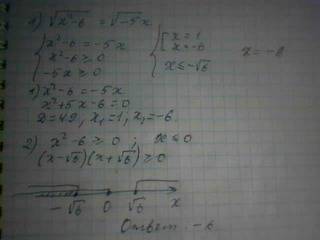 1) √x²-6 = √-5x
{ x²-6 = -5x
x²-6 ≥ 0
-5x ≥ 0
{ [ x = 1
x = -6
x ≤ -√6
x = -6
1) x²-6 = -5x
x²+5x-6=0
D=49, x₁=1; x₂=-6
2) x²-6 ≥ 0 ; x ≤ 0
(x-√6)(x+√6) ≥ 0
-√6 0 √6 x
Ответ: -6